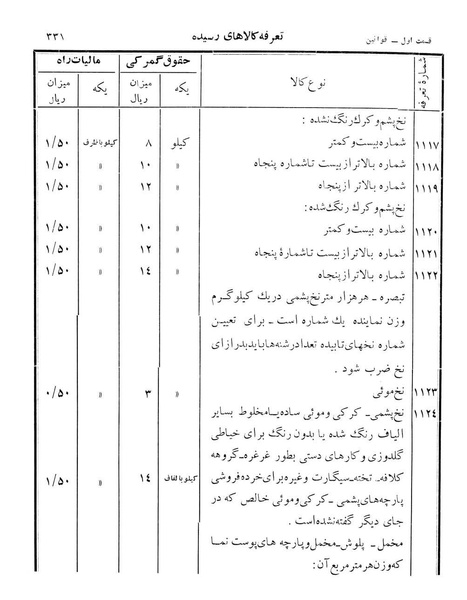 قسمت اول ــ قوانین تعرفه کالاهای رسیده ۳۳۱
شمارهٔ تعرفه نوع کالا حقوق گمرکی مالیات راه
یکه میزان ریال یکه میزان ریال
نخ پشم و کرك رنگ نشده :
۱۱۱۷ شماره بیست و کمتر کیلو ۸ کیلو باظرف ۱/۵۰
۱۱۱۸ شماره بالاتر از بیست تا شماره پنجاه » ۱۰ » ۱/۵۰
۱۱۱۹ شماره بالاتر از پنجاه » ۱۲ » ۱/۵۰
نخ پشم و کرك رنگ شده:
۱۱۲۰ شماره بیست و کمتر » ۱۰ » ۱/۵۰
۱۱۲۱ شماره بالاتر از بیست تا شمارهٔ پنجاه » ۱۲ » ۱/۵۰
۱۱۲۲ شماره بالاتر از پنجاه » ۱٤ » ۱/۵۰
تبصره ــ هر هزار متر نخ پشمی در یك کیلو گرم
وزن نماینده یك شماره است ــ برای تعیین
شماره نخهای تابیده تعداد رشته‌ها باید بدرازای
نخ ضرب شود .
۱۱۲۳ نخ موئی » ۳ » ۰/۵۰
۱۱۲٤ نخ پشمی ــ کرکی و موئی ساده یا مخلوط بسایر
الیاف رنگ شده یا بدون رنگ برای خیاطی
گلدوزی و کارهای دستی بطور غرغره ــ گروهه
کلافه ــ تخته ــ سیگارت و غیره برای خرده فروشی کیلو بالفاف ۱٤ » ۱/۵۰
پارچه‌های پشمی ــ کرکی و موئی خالص که در
جای دیگر گفته نشده است .
مخمل ــ پلوش ــ مخمل و پارچه های پوست نما
که وزن هر متر مربع آن: